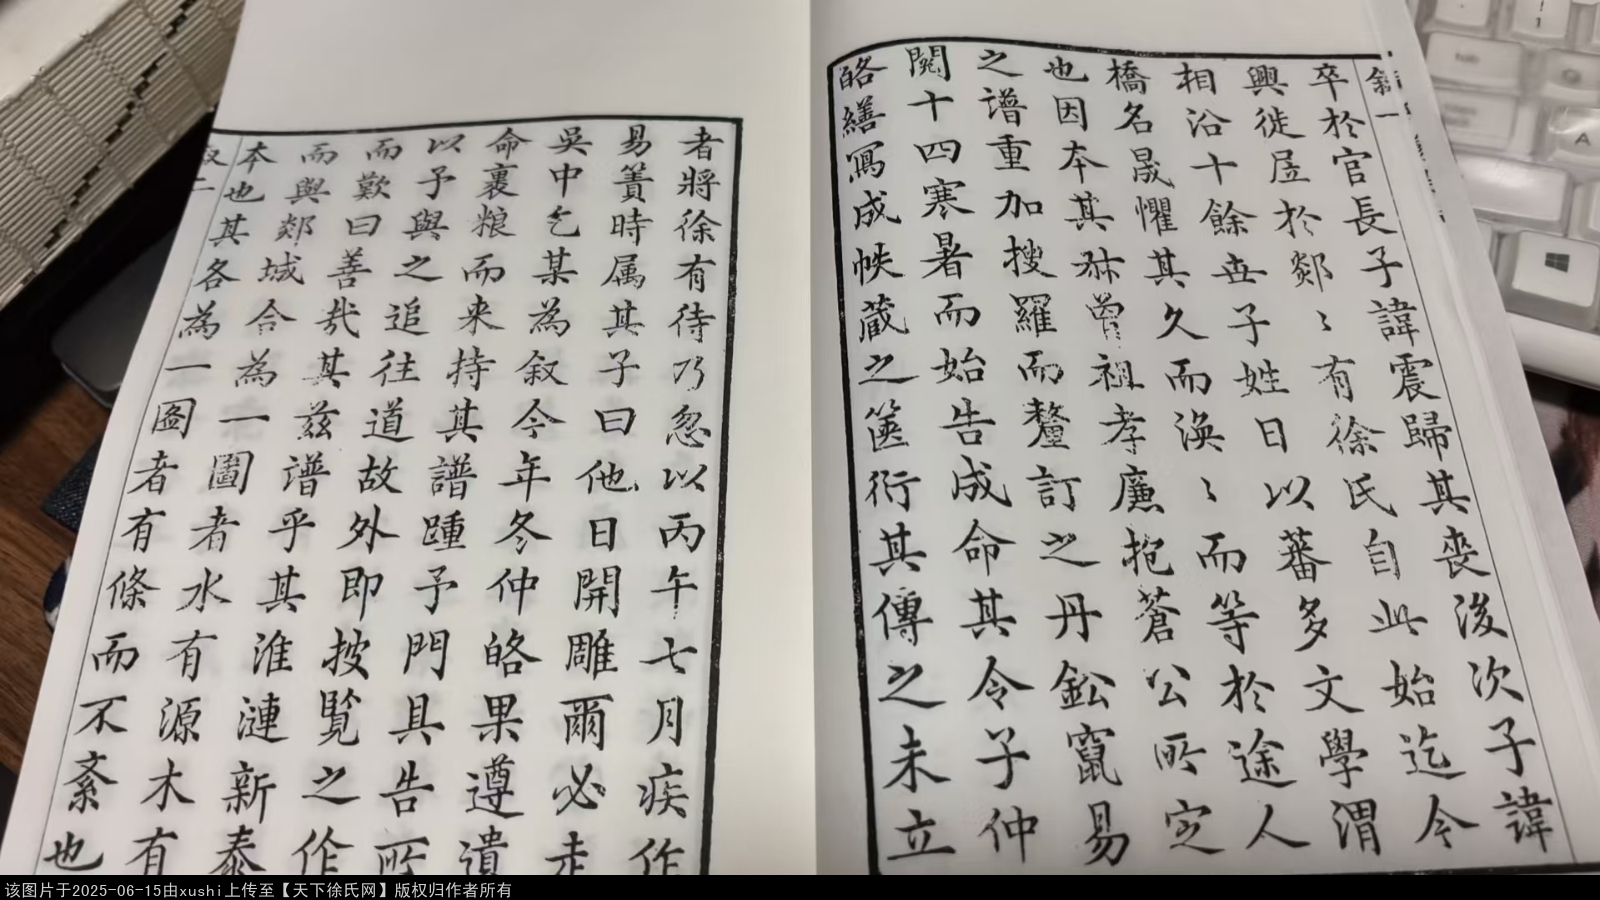 卒於官長子諱震歸其喪後次子諱
興徙居於郯〻有徐氏自此始迄今
相沿十餘世子姓日以蕃多文學渭
橋名晟懼其久而渙〻而等於途人
也因本其㷀曾祖孝廉抱蒼公所定
之譜重加搜羅而釐訂之丹鉛竄易
閱十四寒暑而始告成命其令子仲
皓繕寫成帙藏之篋衍其傳之未立
叙一
者將徐有待乃忽以丙午七月疾作
易簀時属其子曰他日開雕爾必走
吳中乞某為叙今年冬仲皓果遵遺
命裹粮而来持其譜踵予門具告所
以予與之追往道故外即披覽之作
而歎曰善哉其兹譜乎其淮漣新泰
而與郯城合為一圖者水有源木有
本也其各為一圖者有條而不紊也
叙二
A
该图片于2025-06-15由xushi上传至【天下徐氏网】版权归作者所有